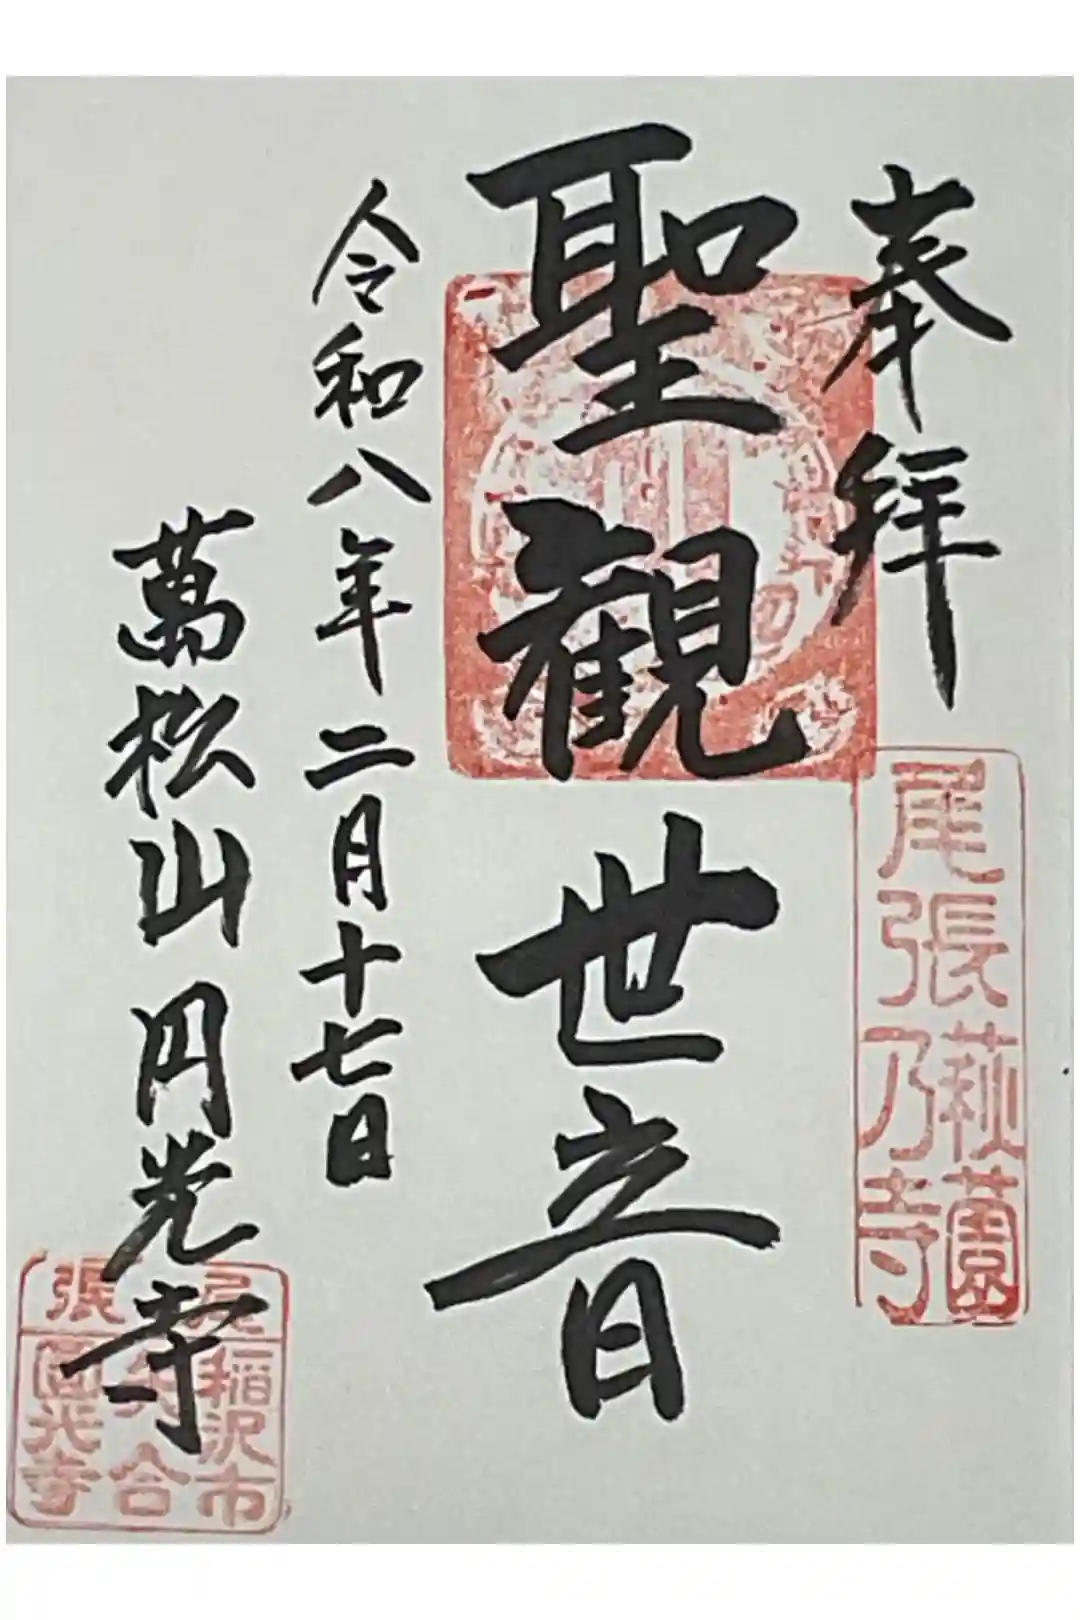 奉拝
尾張
萩園
乃寺
聖観世音
令和八年二月十七日
萬松山円光寺
尾張
稲沢市
矢合
圓光寺